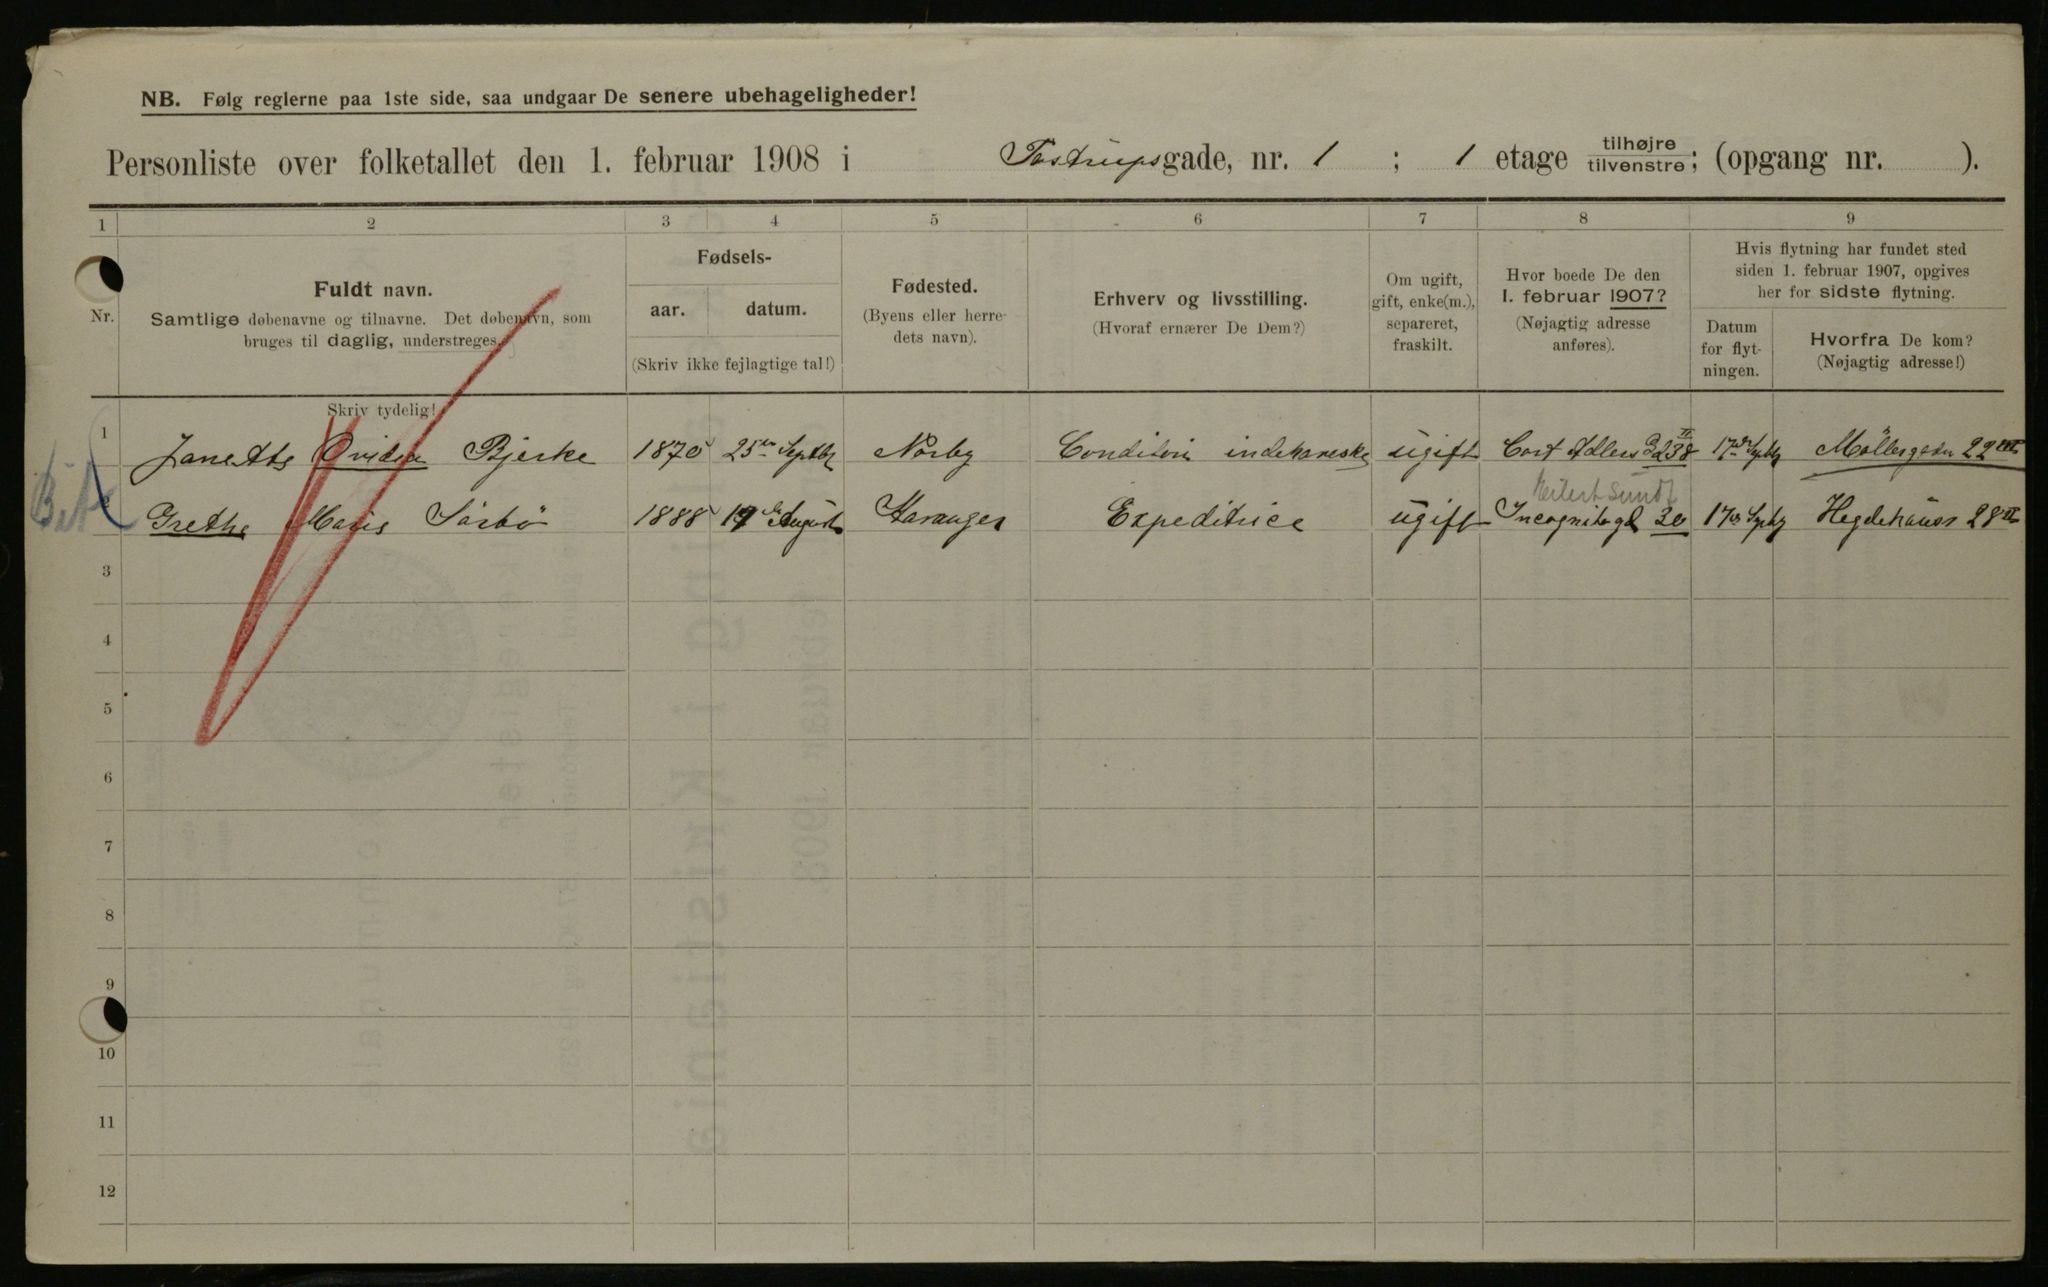 NB. Følg reglerne paa 1ste side, saa undgaar De senere ubehageligheder!
Personliste over folketallet den 1. februar 1908 i Tostrupsgade, nr. 1 ; 1 etage tilhøjre tilvenstre; (opgang nr. ).
1 2 3 4 5 6 7 8 9
Nr.
Fuldt navn.
Samtlige døbenavne og tilnavne. Det døbenavn, som
bruges til daglig, understreges.
Skriv tydelig!
Fødsels-
aar. datum.
(Skriv ikke fejlagtige tal!)
Fødested.
(Byens eller herre-
dets navn).
Erhverv og livsstilling.
(Hvoraf ernærer De Dem?)
Om ugift,
gift, enke(m.),
separeret,
fraskilt.
Hvor boede De den
1. februar 1907?
(Nøjagtig adresse
anføres).
Hvis flytning har fundet sted
siden 1. februar 1907, opgives
her for sidste flytning.
Datum
for flyt-
ningen.
Hvorfra De kom?
(Nøjagtig adresse!)
1 Janette Ovidia Bjerke 1870 25de Septbr Nørby Conditori indehaverske ugift Cort Adlers Gd 38 II 17de Septbr Møllergaden 22 III
Eilert Sundt
2 Grethe Marie Sørbö 1888 19de August Stavanger Expeditrice ugift Incognitogd 30 17de Septbr Hegdehaugsv 28 III
3
4
5
6
7
8
9
10
11
12